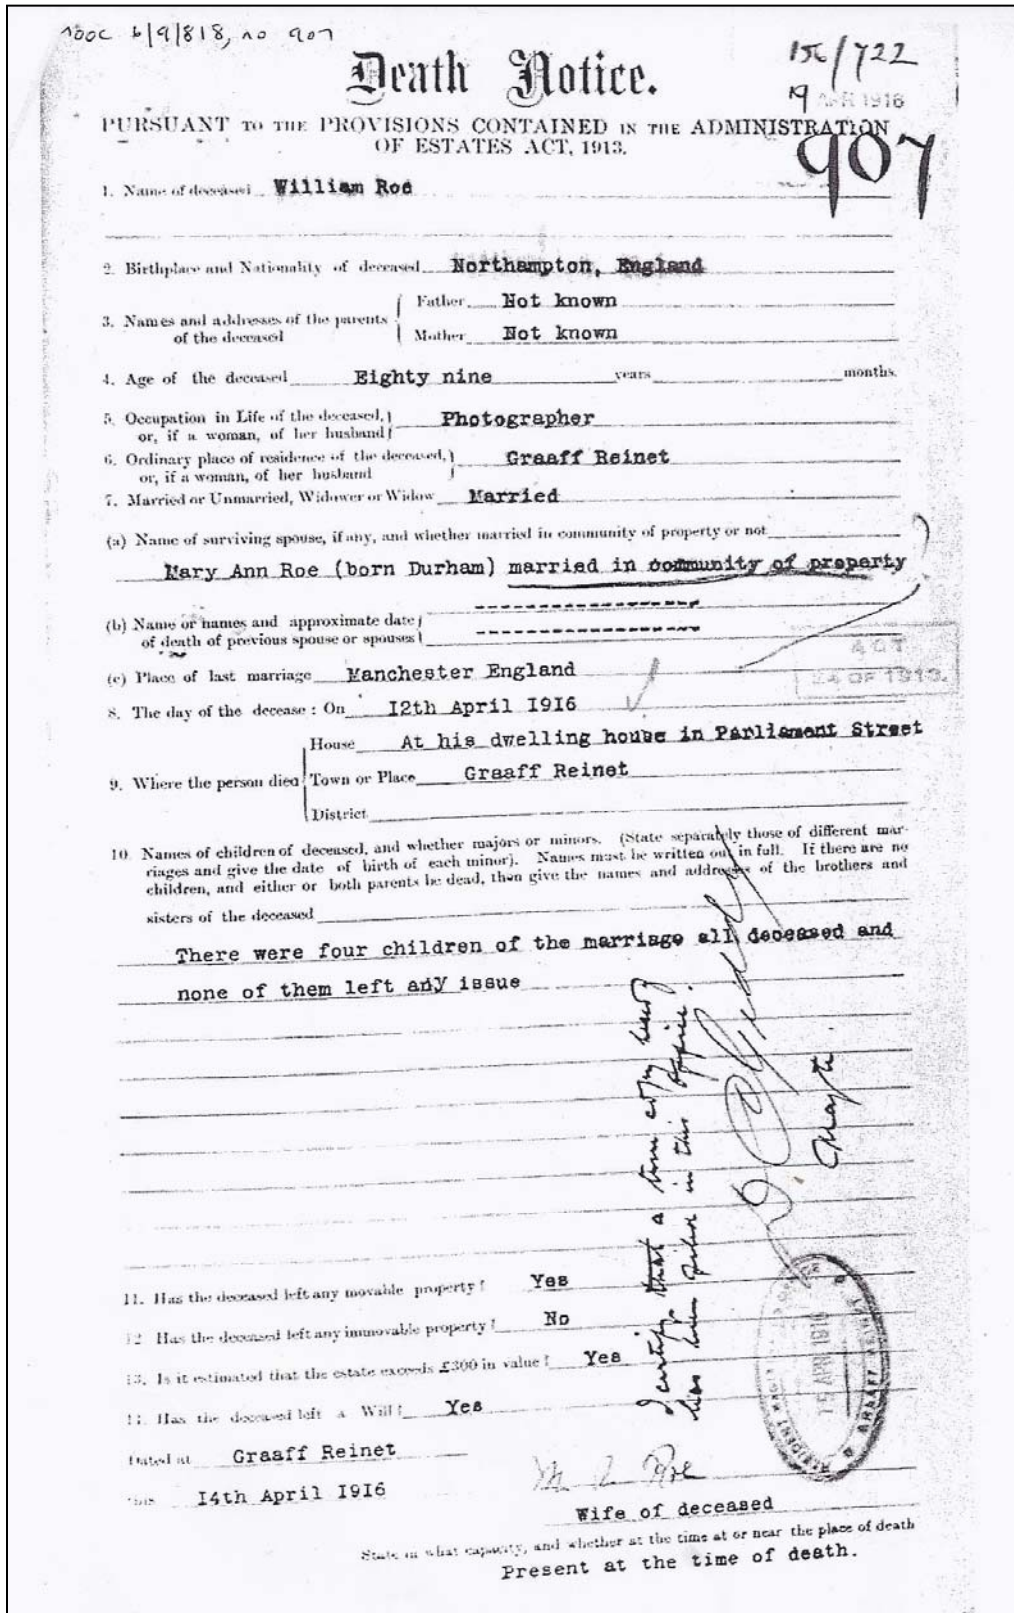 MOOC 6/9/818, no 907
156/722
Death Notice.
19 APR 1916
PURSUANT TO THE PROVISIONS CONTAINED IN THE ADMINISTRATION
OF ESTATES ACT, 1913.
907
1. Name of deceased William Roe
2. Birthplace and Nationality of deceased Northampton, England
3. Names and addresses of the parents of the deceased
Father Not known
Mother Not known
4. Age of the deceased Eighty nine years months.
5. Occupation in Life of the deceased,
or, if a woman, of her husband Photographer
6. Ordinary place of residence of the deceased,
or, if a woman, of her husband Graaff Reinet
7. Married or Unmarried, Widower or Widow Married
(a) Name of surviving spouse, if any, and whether married in community of property or not
Mary Ann Roe (born Durham) married in community of property
(b) Name or names and approximate date
of death of previous spouse or spouses
ACT
24 OF 1913.
(c) Place of last marriage Manchester England
8. The day of the decease: On I2th April I9I6
House At his dwelling house in Parliament Street
9. Where the person died Town or Place Graaff Reinet
District
10. Names of children of deceased, and whether majors or minors. (State separately those of different mar-
riages and give the date of birth of each minor). Names must be written out in full. If there are no
children, and either or both parents be dead, then give the names and addresses of the brothers and
sisters of the deceased
There were four children of the marriage all deceased and
none of them left any issue
I certify that a true copy hereof
has been filed in this office.
11. Has the deceased left any movable property? Yes
12. Has the deceased left any immovable property? No
13. Is it estimated that the estate exceeds £300 in value? Yes
14. Has the deceased left a Will? Yes
RESIDENT MAGISTRATE
15 APR 1916
GRAAFF REINET
Dated at Graaff Reinet
this I4th April I9I6
M A Roe
Wife of deceased
State in what capacity, and whether at the time at or near the place of death
Present at the time of death.